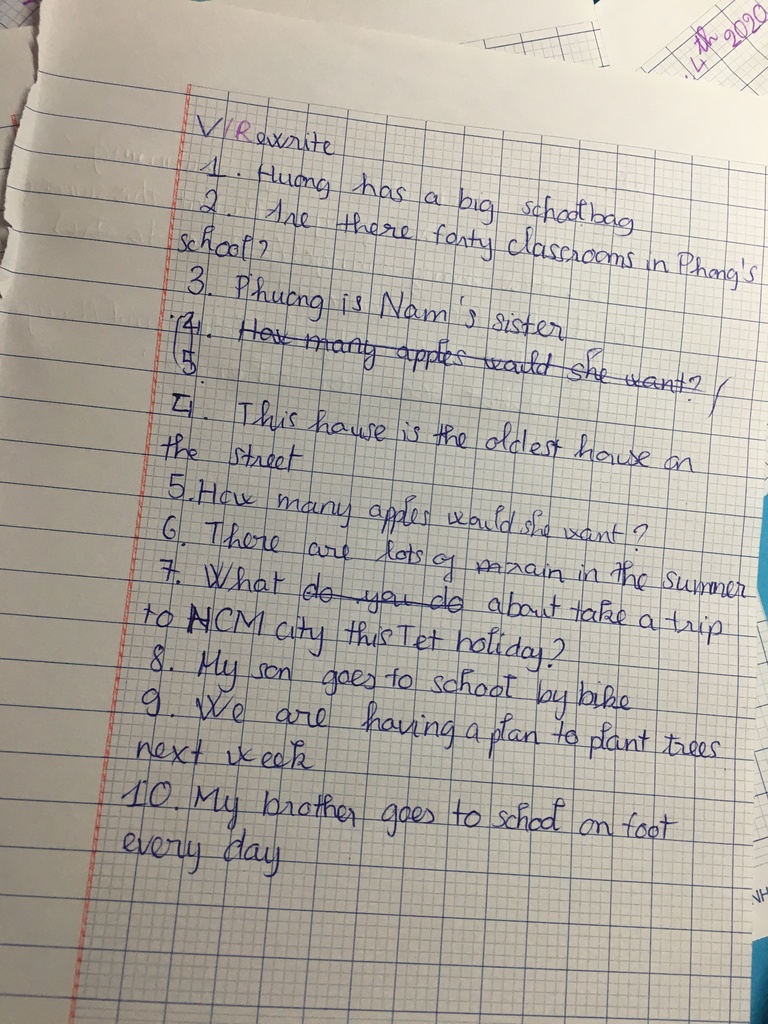 4th 2020
V/Rewrite
1. Huong has a big schoolbag
2. Are there forty classrooms in Phong's
school?
3. Phuong is Nam's sister
(4. How many apples would she want? /
5
4. This house is the oldest house on
the street
5. How many apples would she want?
6. There are lots of rain in the summer
7. What do you do about take a trip
to HCM city this Tet holiday?
8. My son goes to school by bike
9. We are having a plan to plant trees
next week
10. My brother goes to school on foot
every day